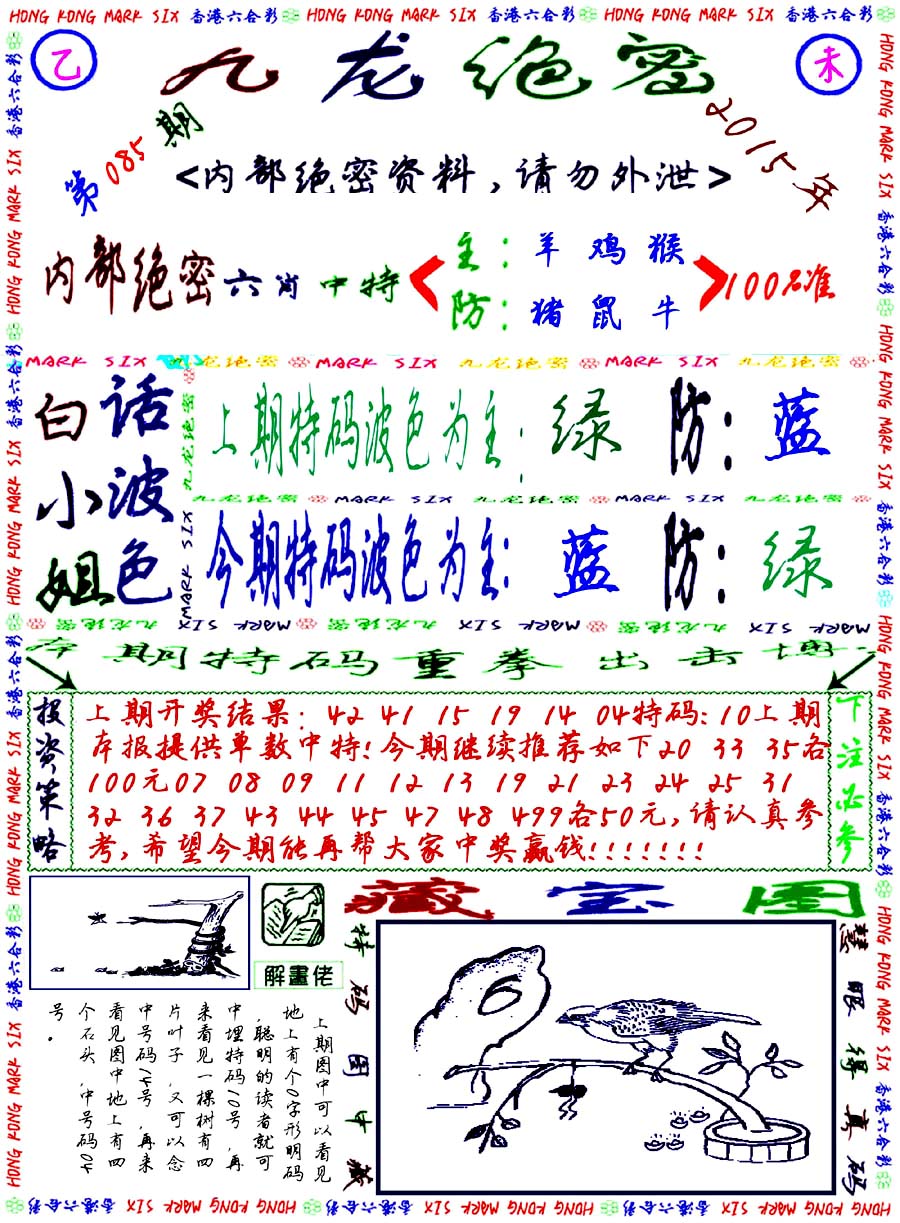 HONG KONG MARK SIX 香港六合彩 HONG KONG MARK SIX 香港六合彩 HONG KONG MARK SIX 香港六合彩
乙
九龙绝密
未
第085期
2015年
<内部绝密资料,请勿外泄>
内部绝密六肖中特
主:羊鸡猴
防:猪鼠牛
100%准
MARK SIX 九龙绝密 MARK SIX 九龙绝密 MARK SIX 九龙绝密
白话
小波
姐色
上期特码波色为主:绿 防:蓝
九龙绝密 MARK SIX 九龙绝密 MARK SIX 九龙绝密
今期特码波色为主:蓝 防:绿
九龙绝密 MARK SIX 九龙绝密 MARK SIX 九龙绝密 MARK SIX
本期特码重拳出击博一
投资策略
上期开奖结果:42 41 15 19 14 04特码:10上期
本报提供单数中特!今期继续推荐如下20 33 35各
100元07 08 09 11 12 13 19 21 23 24 25 31
32 36 37 43 44 45 47 48 499各50元,请认真参
考,希望今期能再帮大家中奖赢钱!!!!!!!
下注必参
解畫佬
藏宝图
特码图中藏
慧眼得真码
上期图中可以看见
地上有个0字形明码
,聪明的读者就可
中埋特码10号,再
来看见一棵树有四
片叶子,又可以念
中号码14号,再来
看见图中地上有四
个石头,中号码40
号.
HONG KONG MARK SIX 香港六合彩 HONG KONG MARK SIX 香港六合彩 HONG KONG MARK SIX 香港六合彩